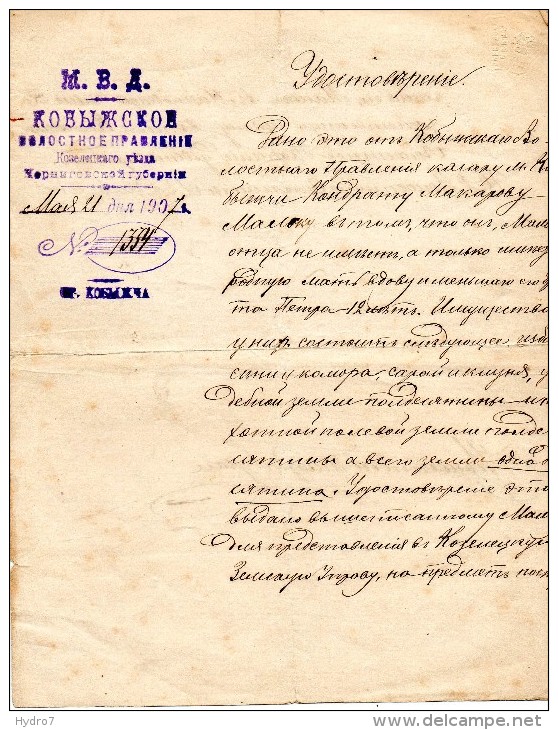 М. В. Д.
КОБЫЖСКОЕ
ВОЛОСТНОЕ ПРАВЛЕНІЕ
Козелецкаго уѣзда
Черниговской губерніи
Мая 21 дня 1907 г.
№ 1394
ст. КОБЫЖЧА
Удостовѣреніе.
Дано это отъ Кобыжскаго Во-
лостнаго Правленія казаку м. Ко
бызчи Кондрату Макарову
въ томъ, что онъ,
отца не имѣетъ, а только имѣет
родную мать вдову и меньшаго
та Петра 12 лѣтъ. Имущество
у нихъ состоитъ слѣдующее: изба
сѣни и комора, сарай и клуня, у
дебной земли полдесятины и
хотной полевой земли полде
сятины а всего земли одна
сятина. Удостовѣреніе это
выдано вышеписанному
для представленія въ Козелецкую
Земскую Управу, на предметъ
Hydro7
delcampe.net